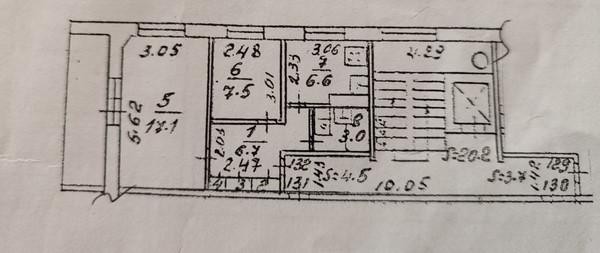 3.05
2.48
3.06
4.29
6
7.5
3.01
2.33
7
6.6
5.62
5
17.1
2.03
1
6.7
2.47
8
3.0
4
3
2
132
131
1.43
S=4.5
10.05
S=20.2
S=3.7
1.42
129
130